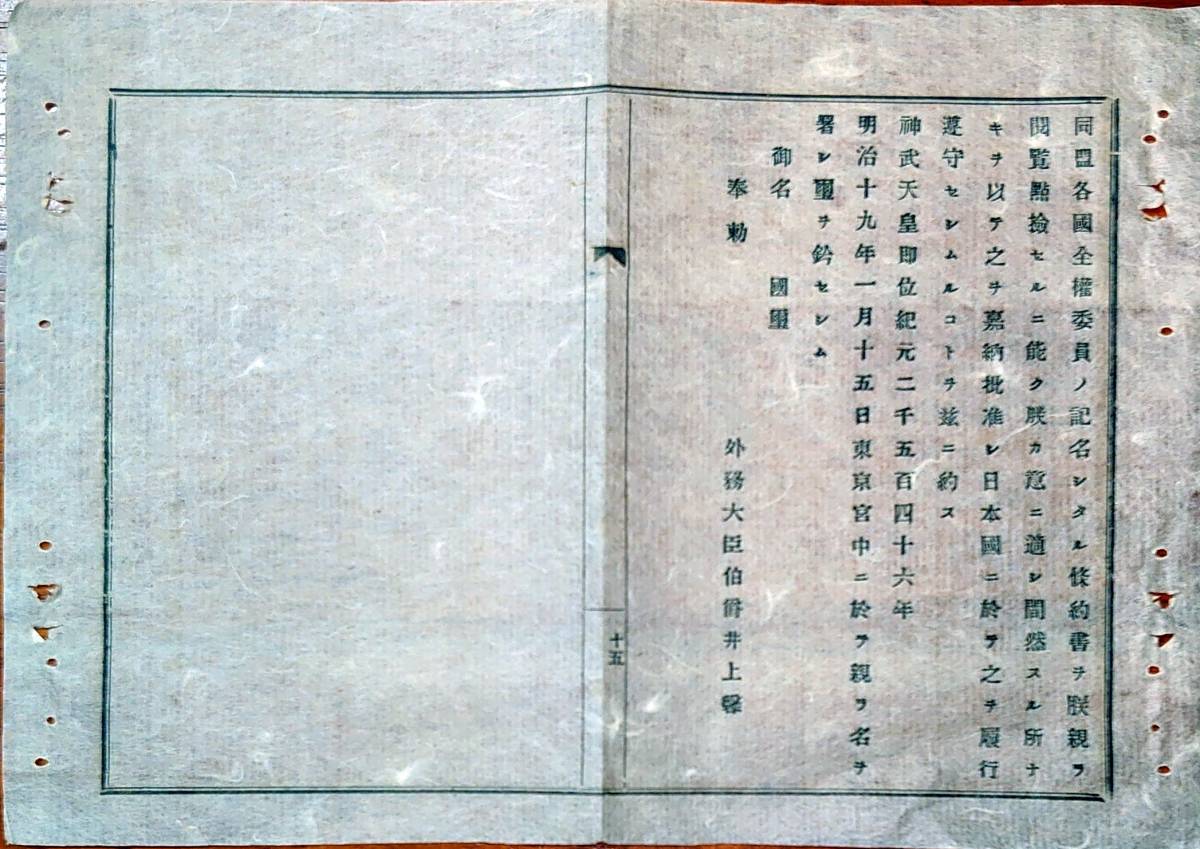 同盟各國全權委員ノ記名シタル條約書ヲ朕親ラ
閲覧點撿セルニ能ク朕カ意ニ適シ間然スル所ナ
キヲ以テ之ヲ嘉納批准シ日本國ニ於テ之ヲ履行
遵守セシムルコトヲ玆ニ約ス
神武天皇即位紀元二千五百四十六年
明治十九年一月十五日東京宮中ニ於テ親ラ名ヲ
署シ璽ヲ鈐セシム
御名 國璽
奉勅
外務大臣伯爵井上馨
十五